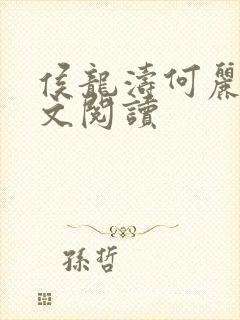 侯龍濤何麗
文閱讀
孫哲